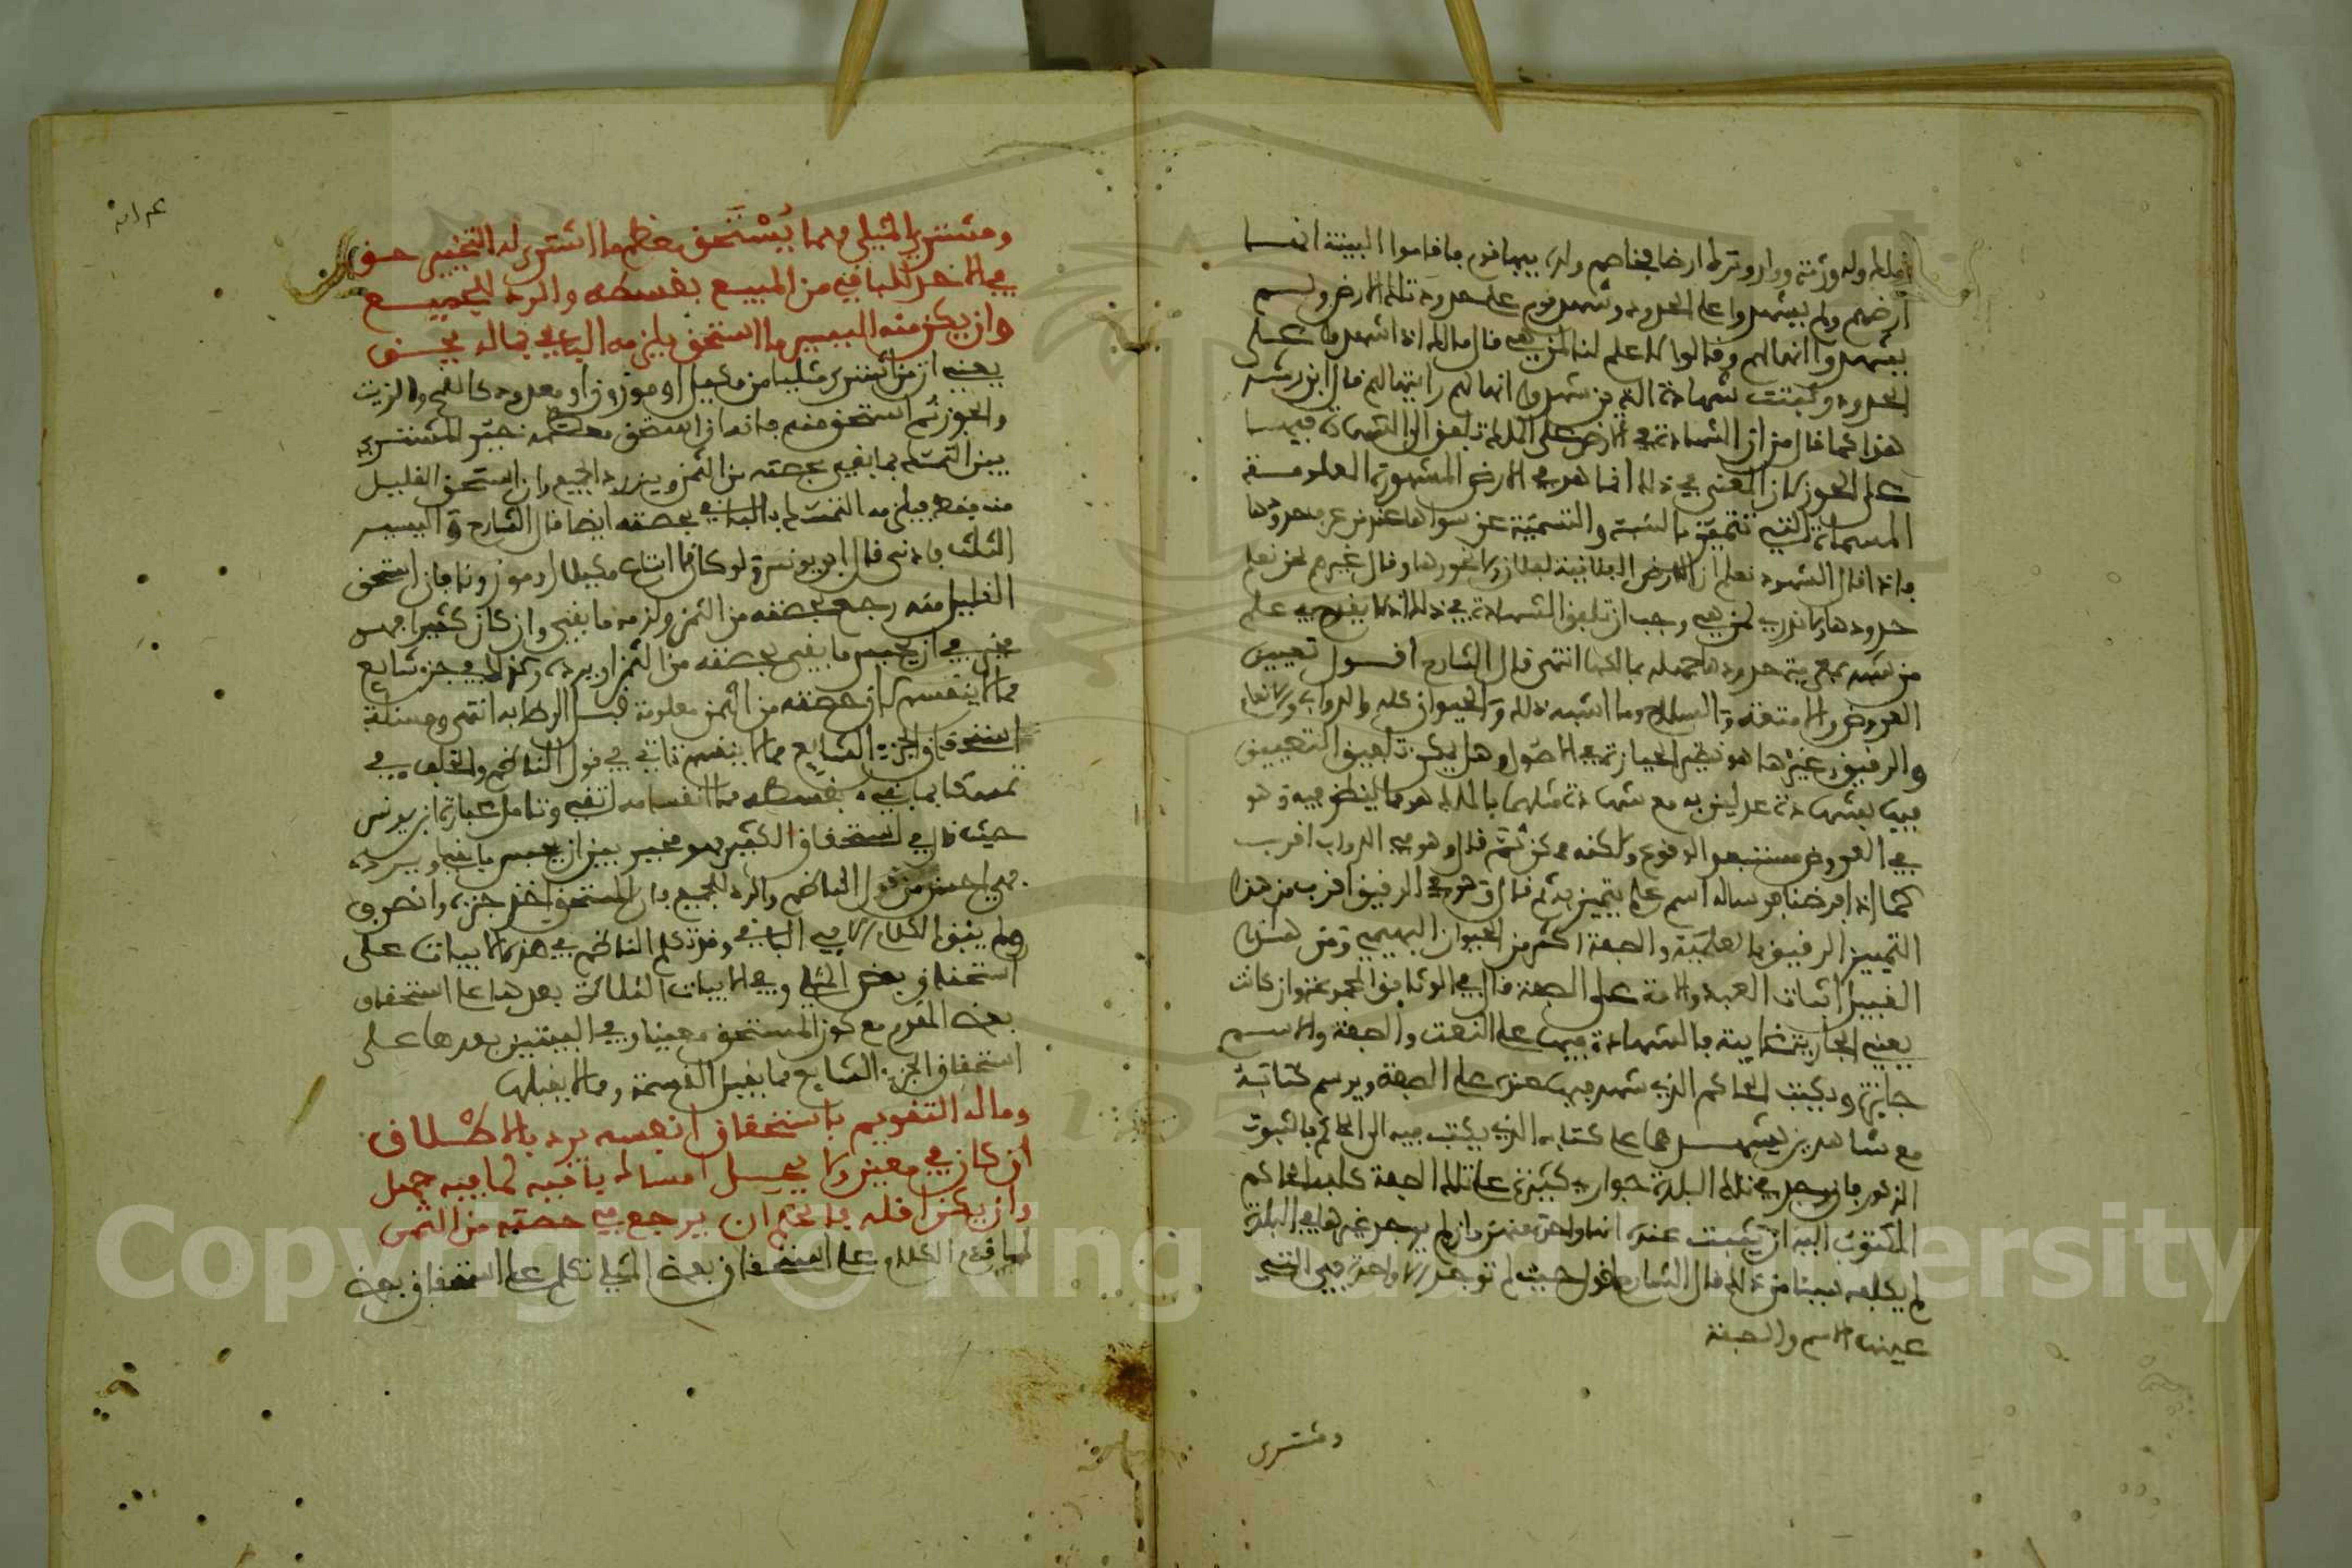 أرضهم ولم يشهدوا على الحدود وشهد قوم على حدود تلك الارض ولم
يشهدوا انها لهم وقالوا لا علم لنا لمن هي قال مالك اذا شهدوا على
الحدود وثبتت شهادة الذين شهدوا انها لهم رايتها لهم قال ابن رشد
هذا كما قال من ان الشهادة في الارض على الملك تلفق الى الشهادة فيها
على الحوز لان المعنى في ذلك انما هو في الارض المشهورة المعلومة
المسماة التي تتميز بالنسبة والتسمية عن سواها عند من عرف حدودها
فاذا قال الشهود نعلم ان الارض الفلانية لفلان ولا نحوزها وقال غيرهم نحن نعلم
حدودها ولا ندري لمن هي وجب ان تلفق الشهادة في ذلك
من شهد بمعرفة حدودها جملة بمالكها انتهى قال الشارح أقول تعيين
العروض والامتعة والسلاح وما اشبه ذلك والحيوان كله والدواب والانعام
والرقيق وغيرها هو نظير الحيازة في الاصول وهل يمكن تلفيق التعيين
فيها بشهادة عدلين به مع شهادة مثلهما بالملك هو مما ينظر فيه وهو
في العروض مستبعد الوقوع ولكنه ممكن ثم قال وهو في الدواب اقرب
كما اذا فرضنا فرسا له اسم علم يتميز به ثم قال وهو في الرقيق اقرب من هذا
لتمييز الرقيق بالعلمية والصفة اكثر من الحيوان البهيمي ومن هذا
القبيل اثبات العبد والامة على الصفة قال في الوثائق المجموعة وان كانت
يعني الجارية غايبة فالشهادة فيها على النعت والصفة والاسم
جايزة ويكتب الحاكم الذي شهد فيها عنده على الصفة ويرسم كتابة
مع شاهدين يشهدهما على كتابه الذي يكتب فيه الى الحاكم بالثبوت
المذكور فان وجد في تلك البلدة جوار كثيرة على تلك الصفة كلف الحاكم
المكتوب اليه ان يثبت عنده انها واحدة منهن وان لم يوجد غيرها في البلدة
لم يكلفه شيئا من ذلك قال الشارح اقول حيث لم توجد الا واحدة فهي التي
عينها الاسم والصفة
ومشتري
ومشتري المثلي مهما يستحق معظم ما اشتري له التخيير حق
في الاخذ للباقي من المبيع بقسطه والرد للجميع
وان يكن منه اليسير ما استحق يلزمه الباقي بما له يحق
يعني ان من اشترى مثليا من مكيل او موزون او معدود كالقمح والزيت
والجوز ثم استحق بعضه فانه ان استحق معظمه خير المشتري
بين التمسك بما بقي بحصته من الثمن وبين رد الجميع وان استحق القليل
منه فقط فيلزمه التمسك بالباقي بحصته ايضا قال الشارح واليسير
الثلث فادنى قال ابن يونس ولو كان ما ابتاع مكيلا او موزونا فان استحق
القليل منه رجع بحصته من الثمن ولزمه ما بقي وان كان كثيرا فهو
مخير في ان يحبس ما بقي بحصته من الثمن او يرده وكذلك في جزء شايع
مما لا ينقسم لان حصته من الثمن معلومة قبل الرضا به انتهى ومسئلة
استحقاق الجزء الشايع مما لا ينقسم تاتي في قول الناظم والخلف في
تمسك بما بقي بقسطه مما انقسامه اتقي وتامل عبارة ابن يونس
حيث قال في استحقاق الكثير هو مخير بين ان يحبس ما بقي او يرده
فهي احسن من قول الناظم والرد للجميع فان المستحق اخذ جزءه وانصرف
ولم يبق الكلام الا في الباقي وقد تكلم الناظم في هذه الابيات على
استحقاق بعض المثلي وفي الابيات الثلاثة بعدها على استحقاق
بعض المقوم مع كون المستحق معينا وفي البيتين بعدها على
استحقاق الجزء الشايع مما يقبل القسمة ومما لا يقبلها
وما له التقويم باستحقاق انفسه يرد بالاطلاق
ان كان في معين ولا يحل امساك باقيه لما فيه جهل
وان يكن اقله فالحكم ان يرجع في حصته من الثمن
لما قدم الكلام على استحقاق بعض المثلي تكلم على استحقاق بعض
Copyright © King Saud University